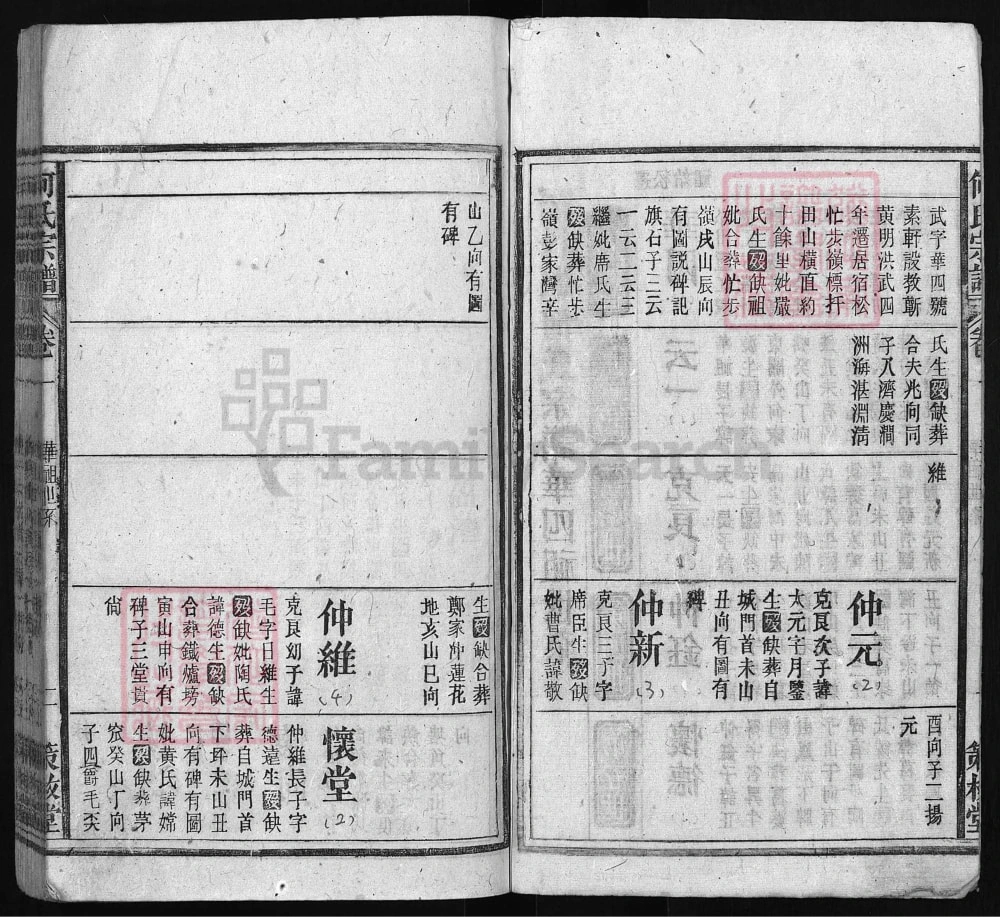 武字華四號
素軒設教蘄
黃明洪武四
年遷居宿松
忙步嶺標扦
田山橫直約
十餘里妣嚴
氏生歿缺祖
妣合葬忙步
嶺戌山辰向
有圖説碑記
旗石子三云
一云二云三
繼妣席氏生
歿缺葬忙步
嶺彭家灣辛
氏生歿缺葬
合夫兆向同
子八濟慶澗
洲海湛淵清
維
仲元
(2)
克艮次子諱
太元字月鑒
生歿缺葬自
城門首未山
丑向有圖有
碑
仲新
(3)
克艮三子字
席臣生歿缺
妣曹氏諱敬
酉向子二揚
元
何氏宗譜
卷一
華祖世系
二
山乙向有圖
有碑
生歿缺合葬
鄭家冲蓮花
地亥山巳向
仲維
(4)
克艮幼子諱
毛字日維生
歿缺妣陶氏
諱德生歿缺
合葬鐵爐塝
寅山申向有
碑子三堂貴
尙
懷堂
(2)
仲維長子字
德遠生歿缺
葬自城門首
下坪未山丑
向有碑有圖
妣黃氏諱嫦
生歿缺葬茅
岌癸山丁向
子四爵毛奀
FamilySearch